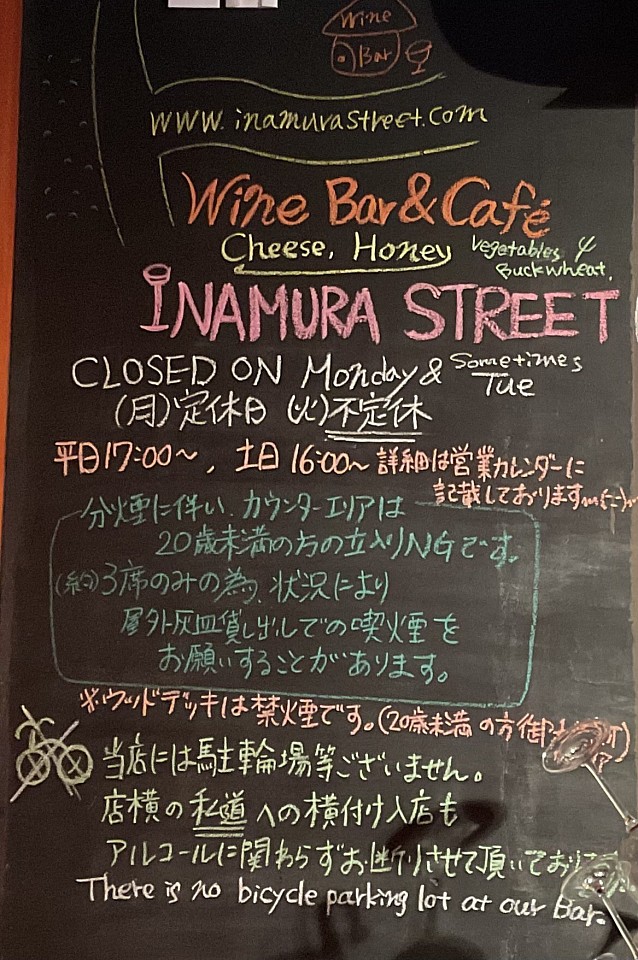 Wine
Bar
www.inamurastreet.com
Wine Bar & Café
Cheese, Honey Vegetables & Buckwheat.
INAMURA STREET
CLOSED ON Monday & Sometimes Tue
(月)定休日 (火)不定休
平日17:00〜, 土日16:00〜 詳細は営業カレンダーに
記載しております
分煙に伴い、カウンターエリアは
20歳未満の方の立入りNGです。
(約)3席のみの為、状況により
屋外灰皿貸し出しでの喫煙を
お願いすることがあります。
※ウッドデッキは禁煙です。(20歳未満の方御
当店には駐輪場等ございません。
店横の私道への横付け入店も
アルコールに関わらずお断りさせて頂いており
There is no bicycle parking lot at our Bar.